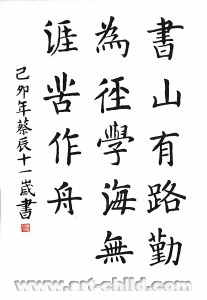 書山有路勤
為徑學海無
涯苦作舟
己卯年蔡辰十一歲書
www.art-child.com